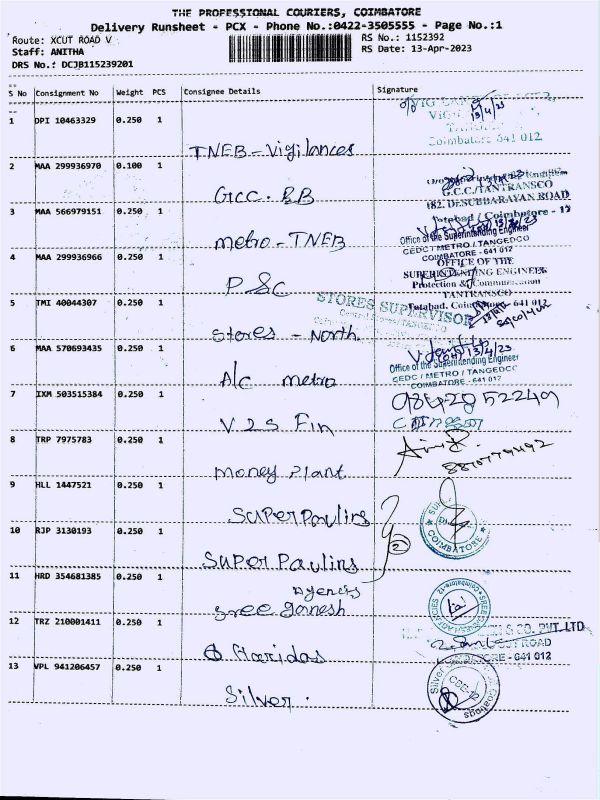 THE PROFESSIONAL COURIERS, COIMBATORE
Delivery Runsheet - PCX - Phone No.:0422-3505555 - Page No.:1
Route: XCUT ROAD V
RS No.: 1152392
Staff: ANITHA
RS Date: 13-Apr-2023
DRS No.: DCJB115239201
S No Consignment No Weight PCS Consignee Details Signature
1 DPI 10463329 0.250 1
TNEB-Vigilances
Coimbatore 641 012
2 MAA 299936970 0.100 1
GCC. RB
G.C.C./TANTRANSCO
182, Dr.SUBBARAYAN ROAD
Tatabad / Coimbatore - 12
3 MAA 566979151 0.250 1
metro-TNEB
Office of the Superintending Engineer
CEDC / METRO / TANGEDCO
COIMBATORE - 641 012
4 MAA 299936966 0.250 1
P&C
OFFICE OF THE
SUPERINTENDING ENGINEER
Protection & Communication
TANTRANSCO
Tatabad, Coimbatore- 641 012
5 TMI 40044307 0.250 1
Stores - North
STORES SUPERVISOR
6 MAA 570693435 0.250 1
A/c metro
13/4/23
Office of the Superintending Engineer
CEDC / METRO / TANGEDCO
COIMBATORE - 641 012
7 IXM 503515384 0.250 1
V2S Fin
9842052249
8 TRP 7975783 0.250 1
money Plant
8870779492
9 HLL 1447521 0.250 1
Super Paulins
COIMBATORE
10 RJP 3130193 0.250 1
Super Paulins
2
11 HRD 354681385 0.250 1
Agencis
Sree ganesh
12 TRZ 210001411 0.250 1
Haridas
& CO. PVT. LTD
ROAD
COIMBATORE - 641 012
13 VPL 941206457 0.250 1
Silver.
CBE-12